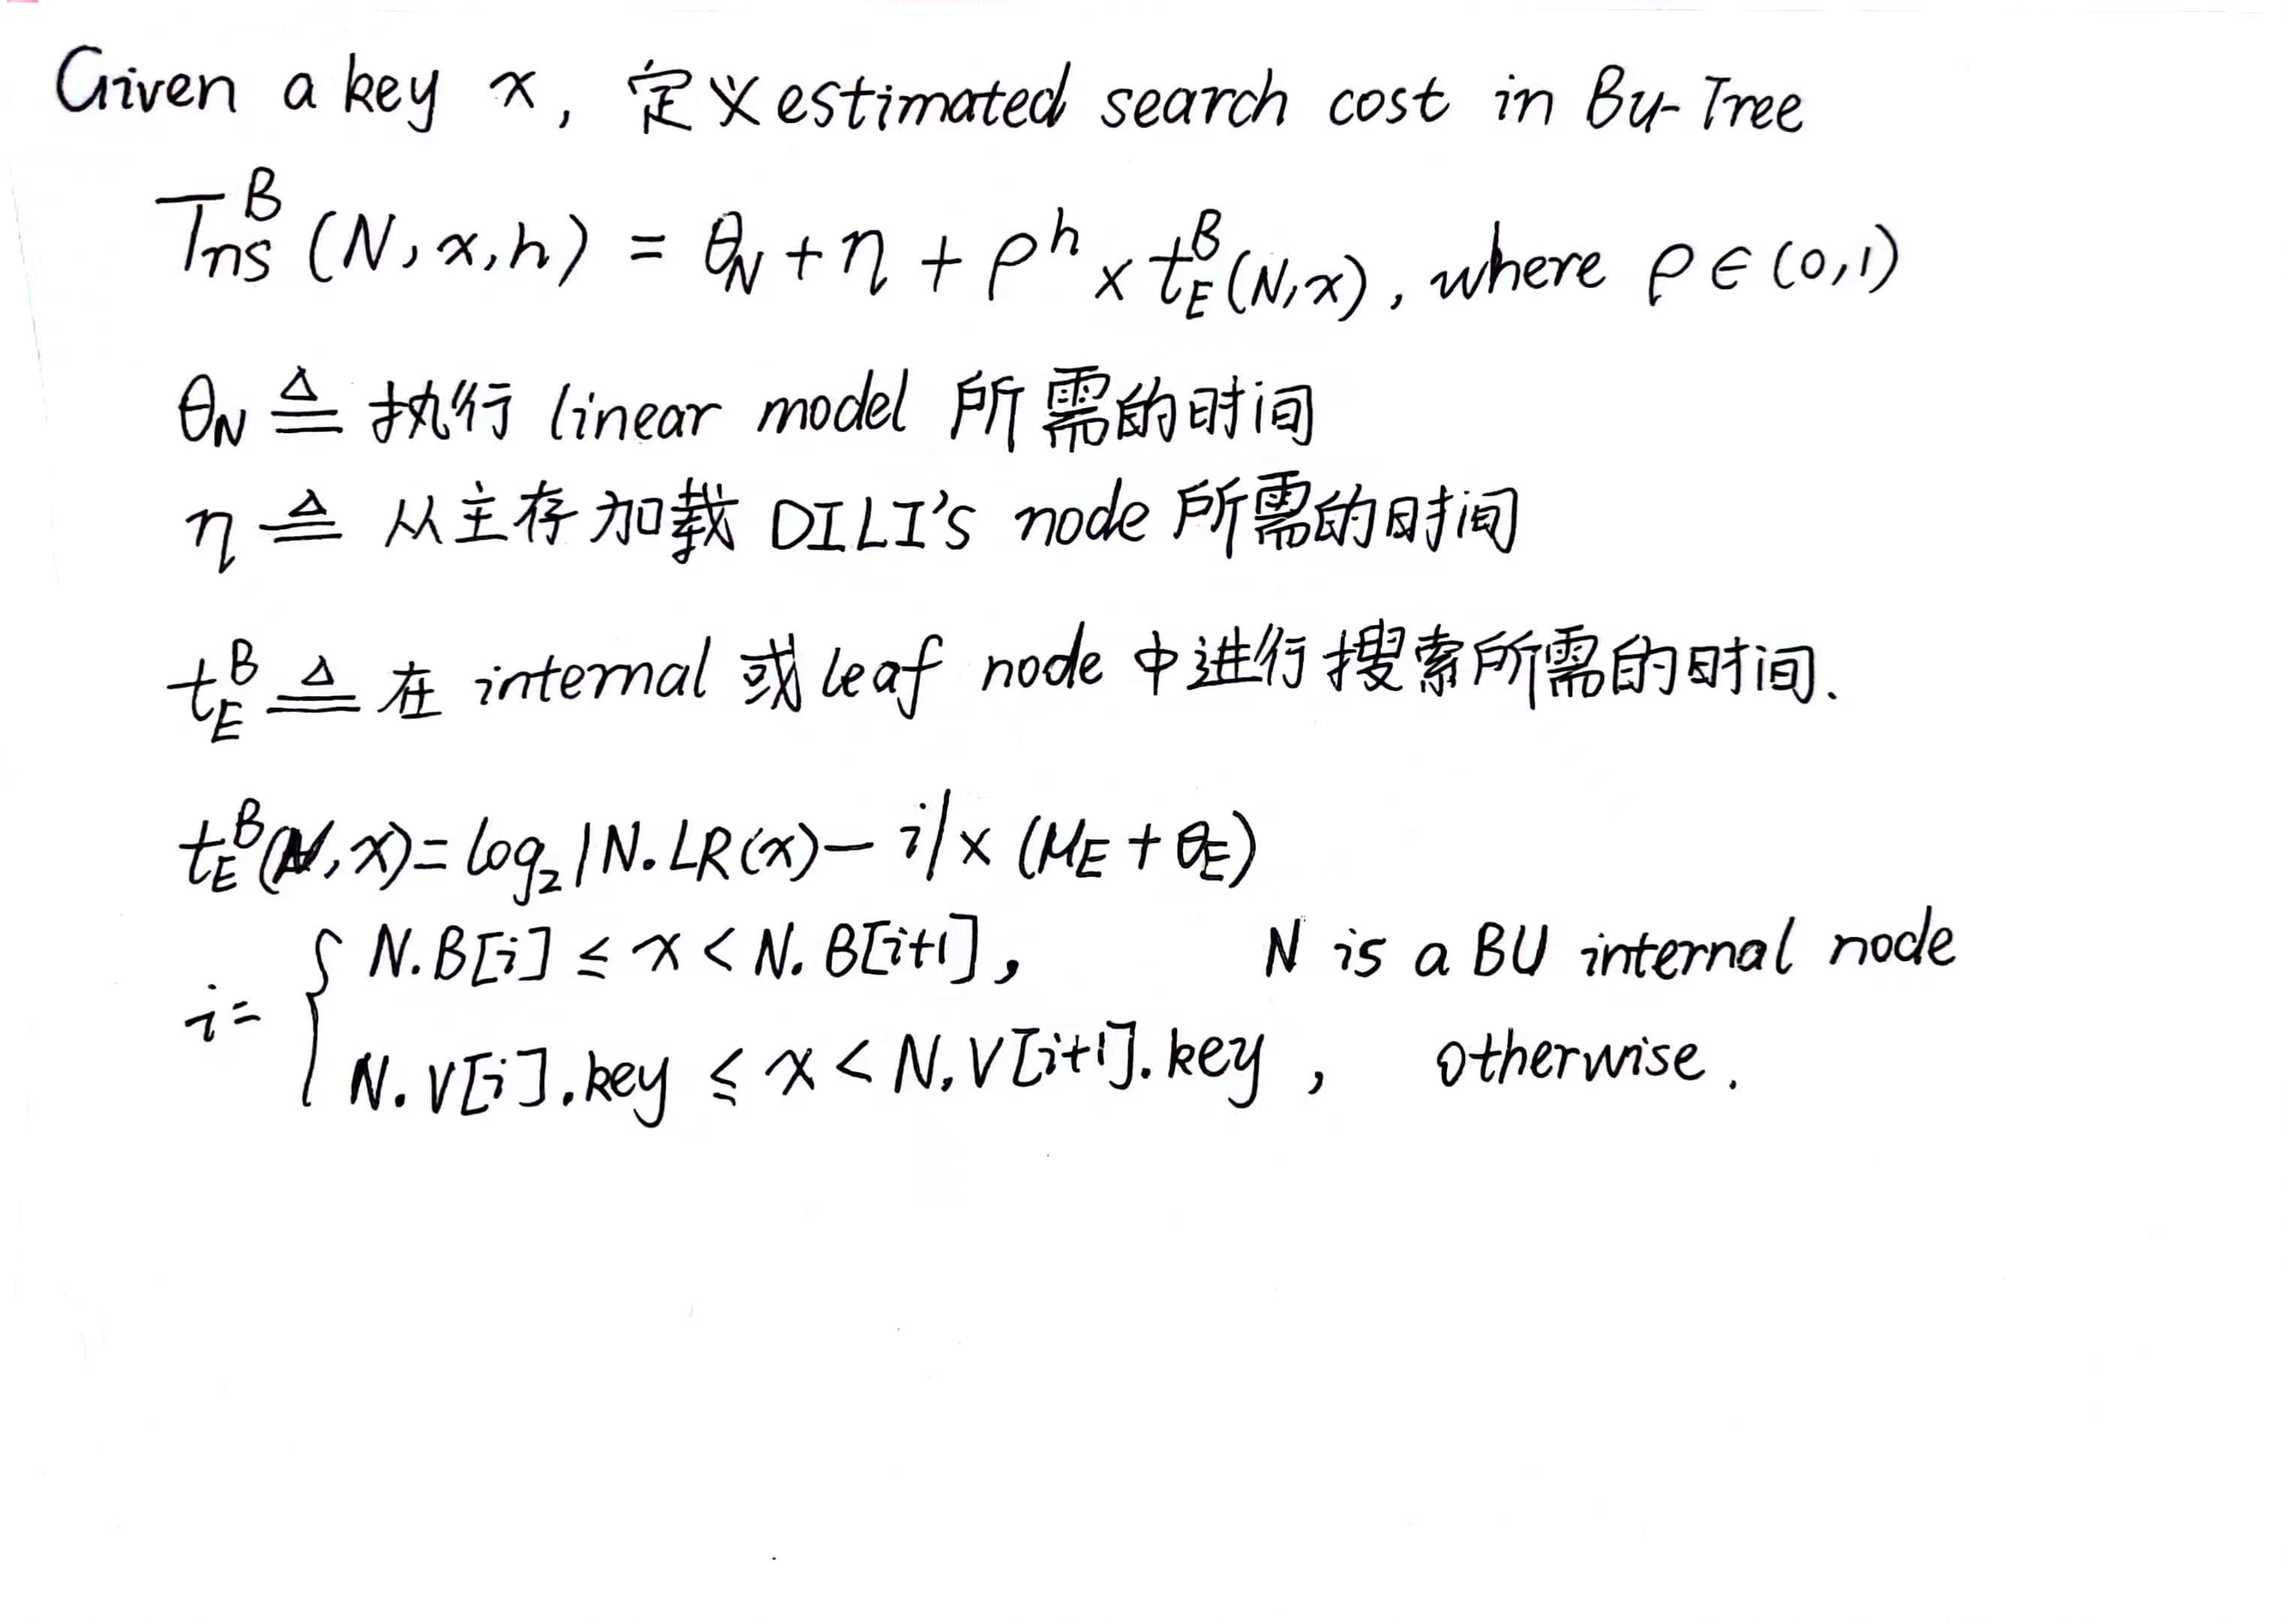 Given a key x, 定义 estimated search cost in Bu-Tree
T_{ns}^{B}(N, x, h) = θ_N + η + ρ^h × t_E^B(N, x), where ρ ∈ (0,1)
θ_N ≜ 执行 linear model 所需的时间
η ≜ 从主存加载 DILI's node 所需的时间
t_E^B ≜ 在 internal 或 leaf node 中进行搜索所需的时间.
t_E^B(N, x) = log_2 |N.LR(x) - i| × (μ_E + θ_E)
i = { N.B[i] ≤ x < N.B[i+1], N is a BU internal node
N.V[i].key ≤ x < N.V[i+1].key, otherwise.